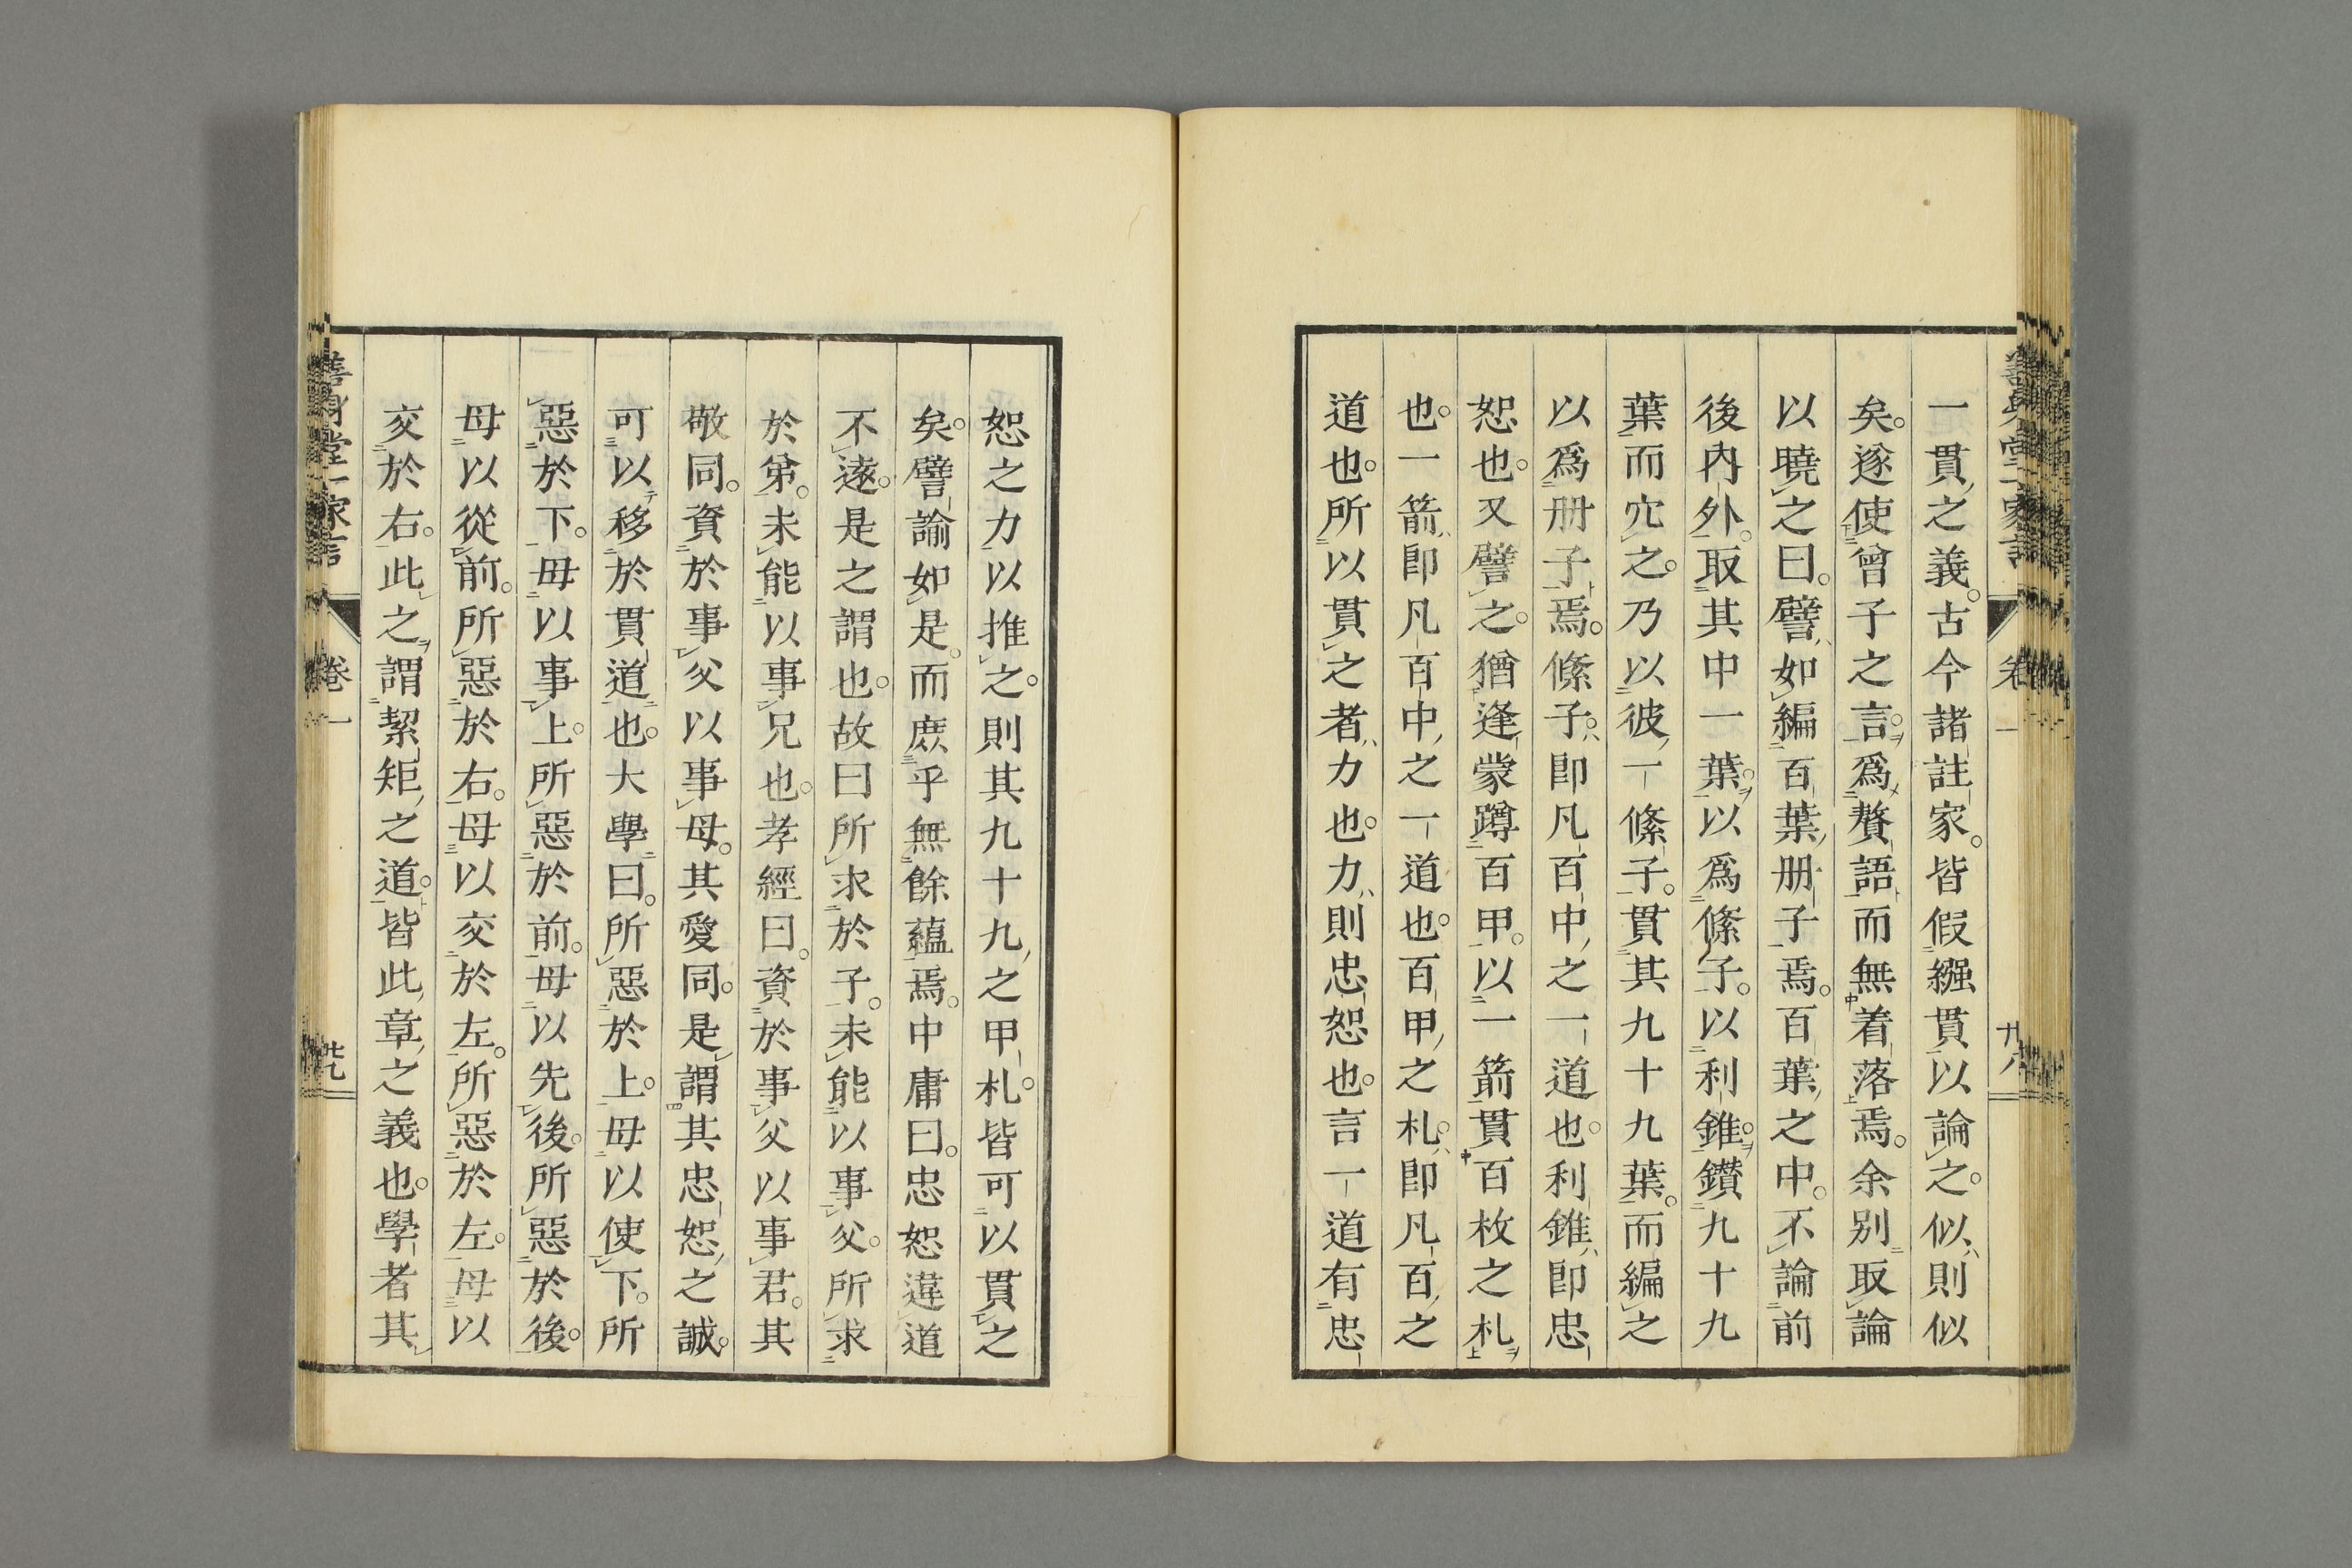 一貫之義。古今諸註家。皆假繦貫以論之。似則似
矣。遂使曾子之言。爲贅語而無着落焉。余别取論
以曉之曰。譬如編百葉册子焉。百葉之中。不論前
後內外。取其中一葉。以爲絛子。以利錐。鑽九十九
葉而穴之。乃以彼一絛子。貫其九十九葉。而編之
以爲册子焉。絛子。卽凡百中之一道也。利錐卽忠
恕也。又譬之。猶逢蒙蹲百甲。以一箭貫百枚之札
也。一箭卽凡百中之一道也。百甲之札。卽凡百之
道也。所以貫之者力也。力則忠恕也。言一道有忠
恕之力以推之。則其九十九之甲札。皆可以貫之
矣。譬諭如是。而庶乎無餘蘊焉。中庸曰。忠恕違道
不遠。是之謂也。故曰所求於子。未能以事父。所求
於弟。未能以事兄也。孝經曰。資於事父以事君。其
敬同。資於事父以事母。其愛同。是謂其忠恕之誠。
可以移於貫道也。大學曰。所惡於上。毋以使下。所
惡於下。毋以事上。所惡於前。毋以先後。所惡於後。
毋以從前。所惡於右。毋以交於左。所惡於左。毋以
交於右。此之謂絜矩之道。皆此章之義也。學者其
卷一